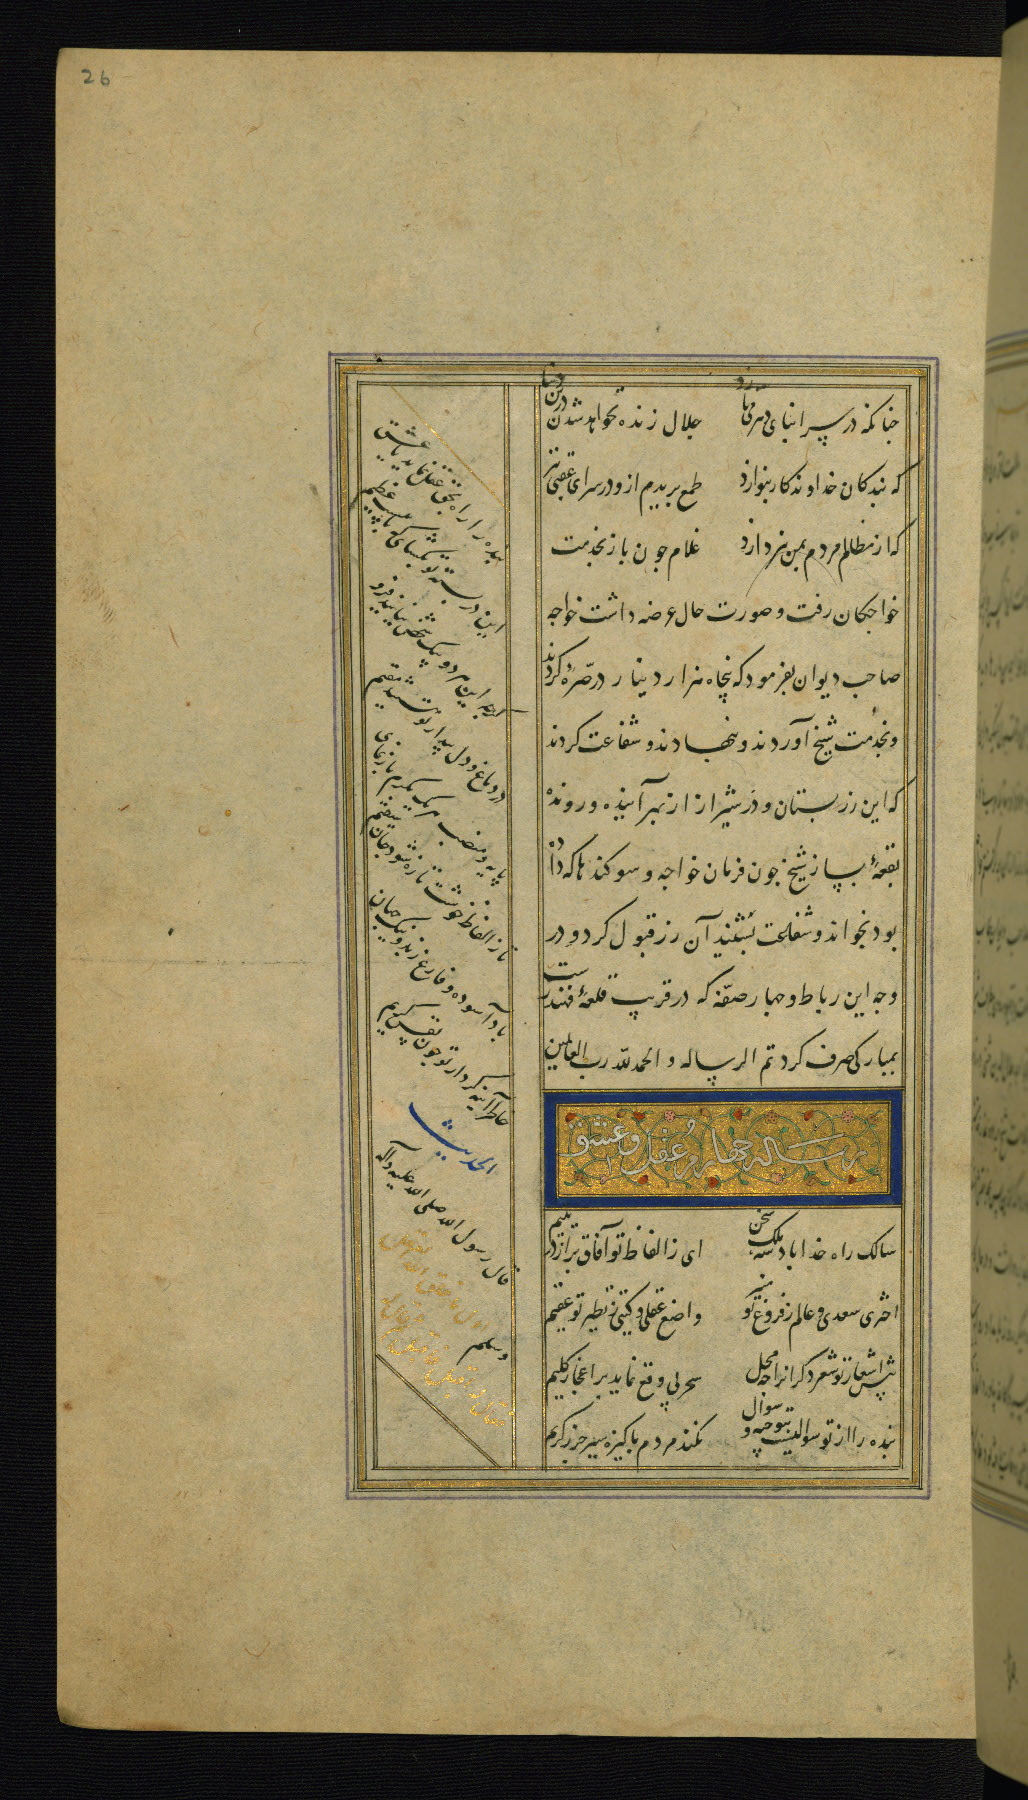 26
جنانکه در سرای دنیا
جلال زنده نخواهد شدن درین دنیا
که بندکان خداوندکار بنوازد
طمع بریدم ازو در سرای عقبی نیز
که از مظالم مردم بمن نپردازد
غلام جون باز بخدمت
خواجکان رفت و صورت حال عرضه داشت خواجه
صاحب دیوان بفرمود که پنجاه هزار دینار در صرّهٔ کردند
و بخدمت شیخ آوردند و بنهادند و شفاعت کردند
که این زر بستان و در شیراز از بهر آینده و رونده
بقعهٔ بساز شیخ جون فرمان خواجه و سوکندها که داده
بود بخواند و شفاعت بشنید آن زر قبول کرد و در
وجه این رباط و جهار صفّه که در قریب قلعهٔ قهندز ست
بمبارکی صرف کرد تم الرساله و الحمد لله رب العالمین
رساله جهارم در عقل و عشق
سالک راه خدا پادشه ملک سخن
ای ز الفاظ تو آفاق پر از در یتیم
اختر سعدی و عالم ز فروغ تو منیر
واضع عقلی و کیتی ز نظیر تو عقیم
پیش اشعار تو شعر دکران را جه محل
سحر بی وقع نماید بر اعجاز کلیم
بنده را از تو سوالیست بتوجیه و سوال
نکند مردم پاکیزه سیر جز ز کریم
بنده را راه بحق عقل نماید یا عشق
این در بسته تو بکشای که بابیست عظیم
کرجه این هر دو بیک شخص نیایند فرو
در دماغ و دل بیدار تو بینند مقیم
پایه و منصب هر یک بکرم باز نمای
تا ز الفاظ خوشت تازه شود جان سقیم
باد آسوده و فارغ ز بد و نیک جهان
خاطر آینه کردار تو جون نفس کریم
الحدیث
قال رسول الله صلی الله علیه و آله
وسلم